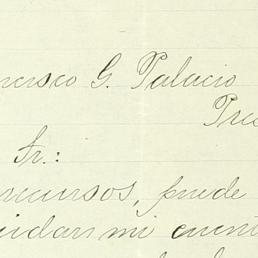 ncisco G. Palacio
Pre
Sr.:
recursos, puede
uidar mi cuen